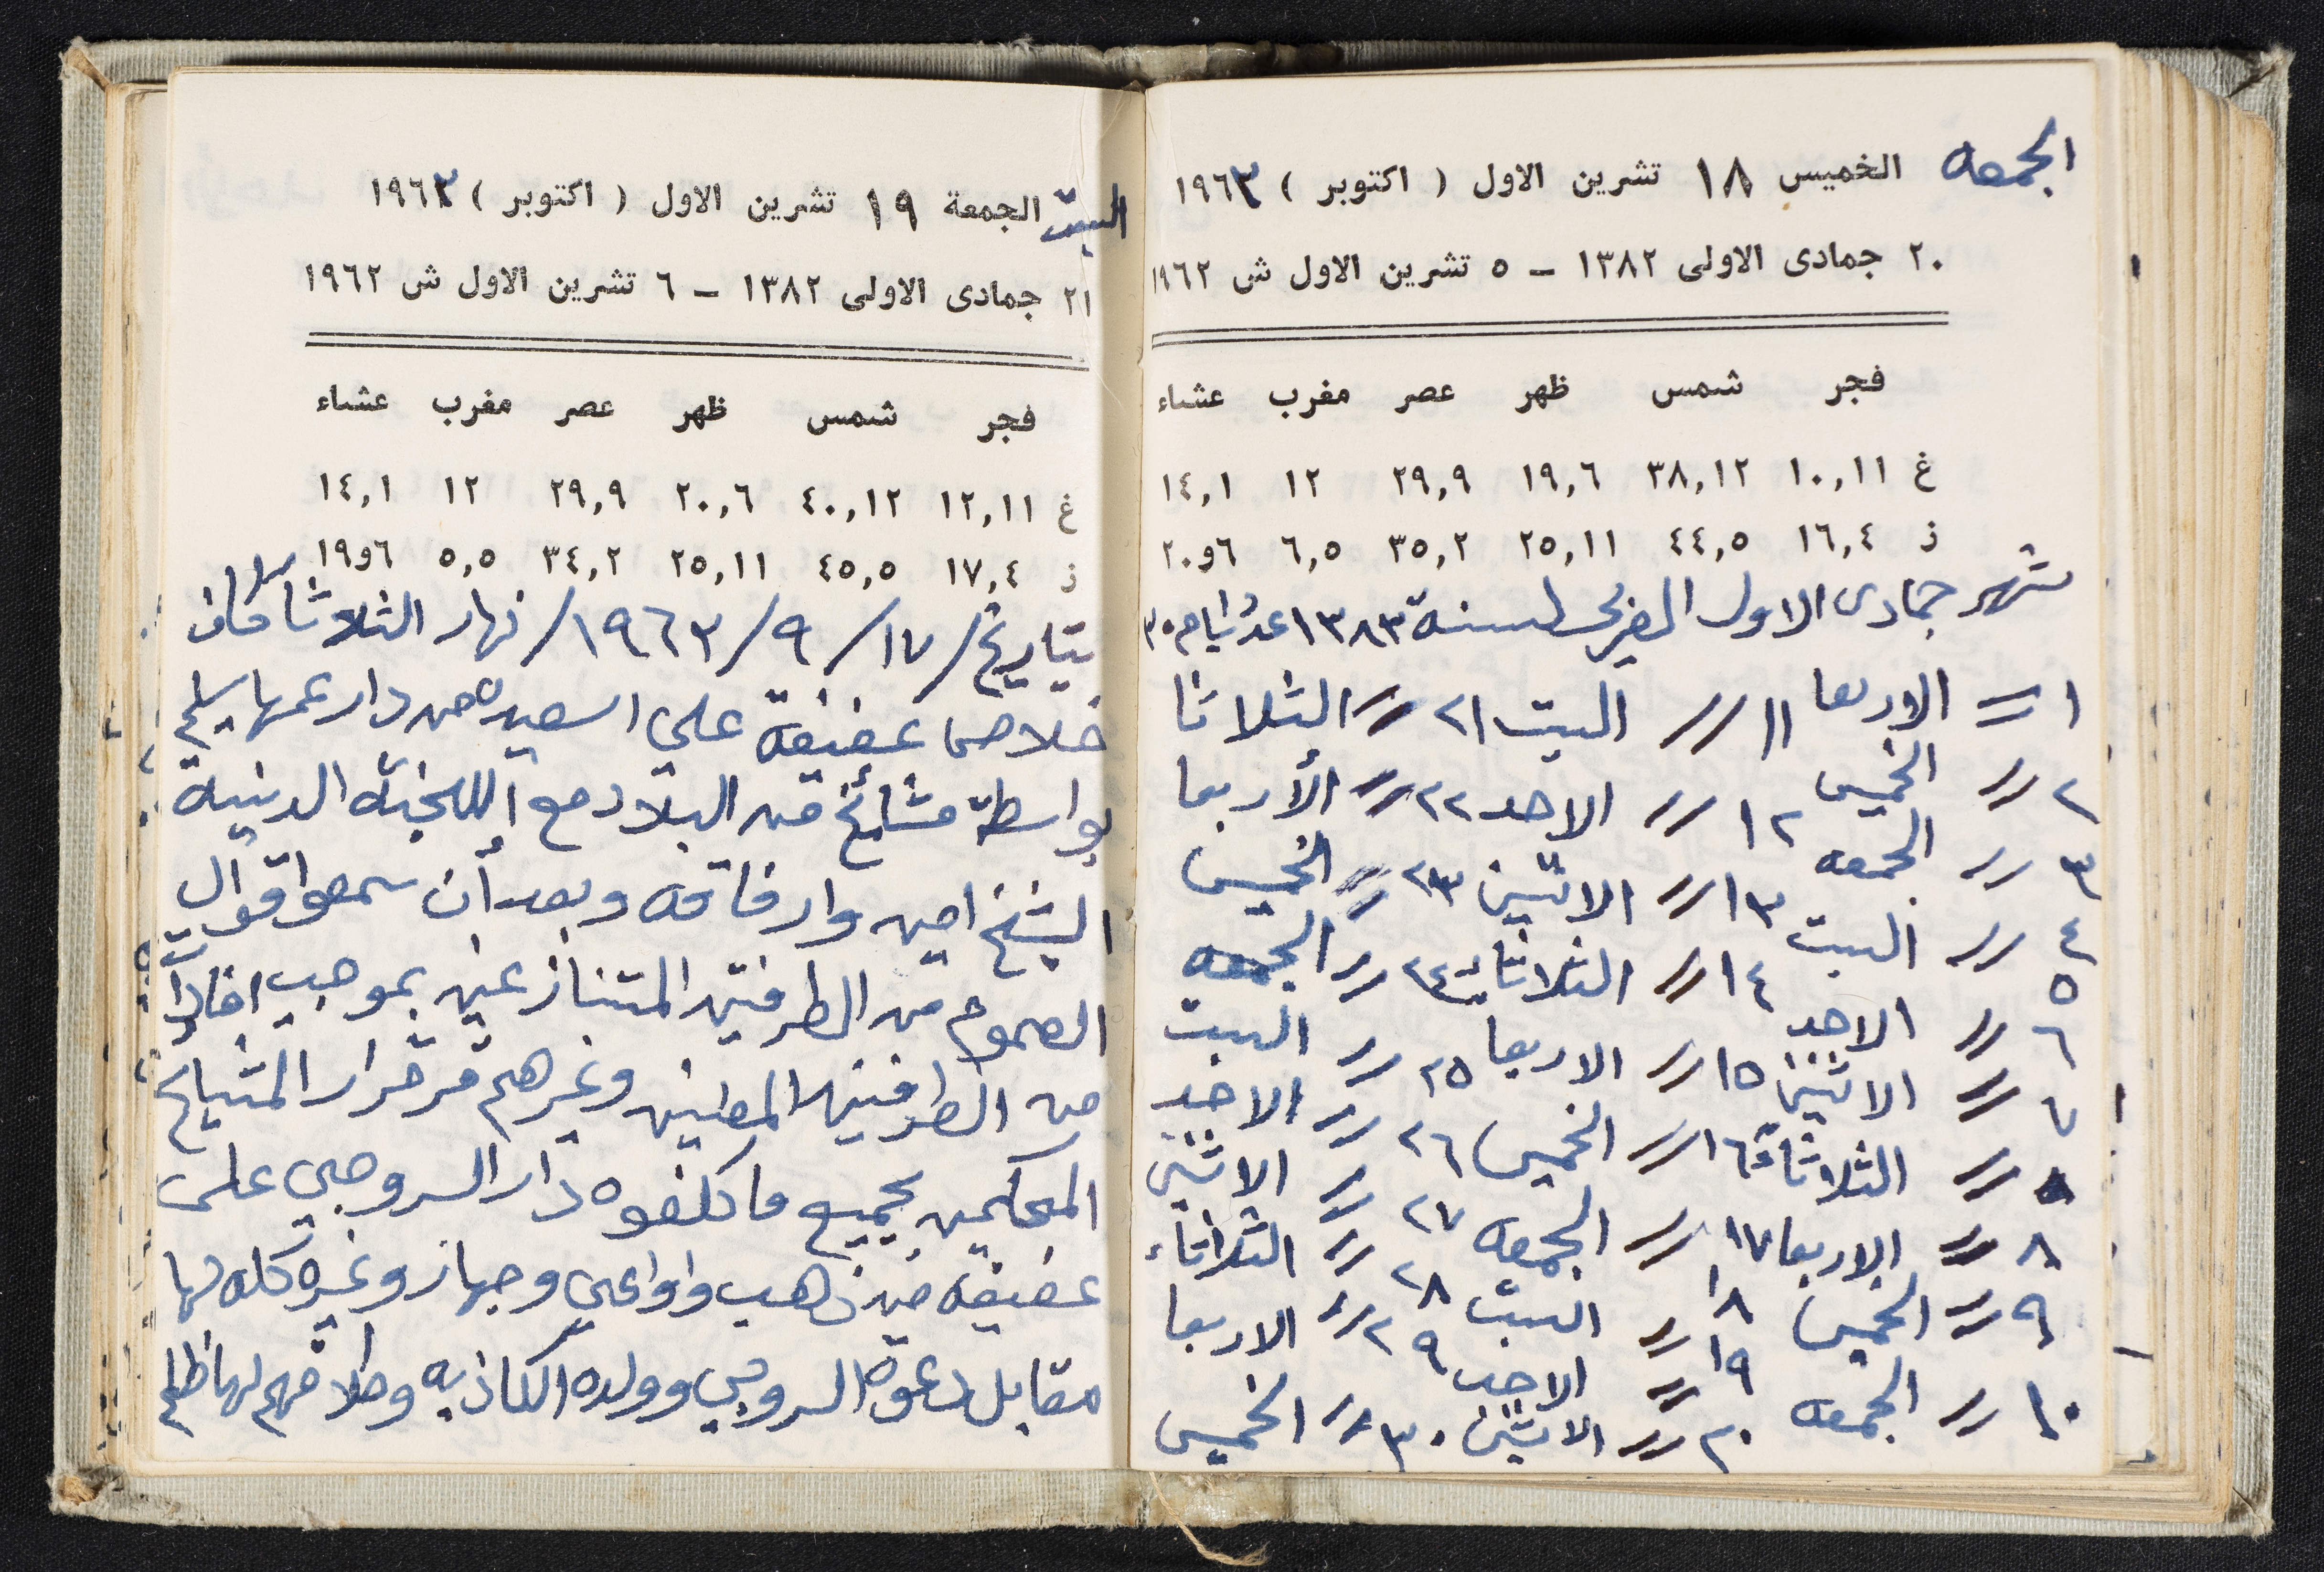 الجمعه الخميس ١٨ تشرين الاول ( اكتوبر ) ١٩٦٣
٢٠ جمادى الاولى ١٣٨٢ – ٥ تشرين الاول ش ١٩٦٢
فجر شمس ظهر عصر مغرب عشاء
غ ١٠,١١ ٣٨,١٢ ١٩,٦ ٢٩,٩ ١٢ ١٤,١
ز ١٦,٤ ٤٤,٥ ٢٥,١١ ٣٥,٢ ٦,٥ ٦و٢٠
شهر جمادى الاول لسنة ١٣٨٣ عدد ايام ٣٠
١ = الاربعا ١١ // السبت ٢١ // الثلاثا
٢ // الخميس ١٢ // الاحد ٢٢ // الأربعا
٣ // الجمعه ١٣ // الاثنين ٢٣ // الخميس
٤ // السبت ١٤ // الثلاثاء ٢٤ // الجمعه
٥
٦ // الاحد ١٥ // الاربعا ٢٥ // السبت
٧ // الاثنين ١٦ // الخميس ٢٦ // الاحد
// الثلاثاء ١٧ // الجمعه ٢٧ // الاثنين
٨ // الاربعا ١٨ // السبت ٢٨ // الثلاثاء
٩ // الخميس ١٩ // الاحد ٢٩ // الاربعا
١٠ // الجمعه ٢٠ // الاثنين ٣٠ // الخميس
السبت الجمعة ١٩ تشرين الاول ( اكتوبر ) ١٩٦٣
٢١ جمادى الاولى ١٣٨٢ – ٦ تشرين الاول ش ١٩٦٢
فجر شمس ظهر عصر مغرب عشاء
غ ١٢,١١ ٤٠,١٢ ٢٠,٦ ٢٩,٩ ١٢ ١٤,١
ز ١٧,٤ ٤٥,٥ ٢٥,١١ ٣٤,٢ ٥,٥ ٦و١٩
بتاريخ /١٧ /٩ /١٩٦٣/ نهار الثلاثا كان
خلاص عفيفة علي اسعيد من دار عمها سليم
بواسطة مشائخ من البلاد مع اللجنة الدنيه
الشيخ امين وارفاقه وبعد أن سمعوا قوال
العموم من الطرفين المتنازعين بموجب افادات
من الطرفين وغيرهم قر قرار المشيايخ
المحكمين بجميع ما كلفوه دار السروجي على
عفيفه من ذهب واواعي وجهاز وغيره كله لها
مقابل دعوة السروجي وولده الكاذبه وطلاقهم لها ظلم